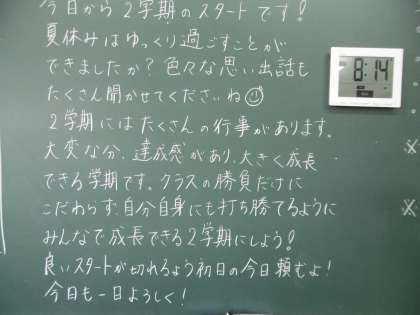 今日から2学期のスタートです!
夏休みはゆっくり過ごすことが
できましたか?色々な思い出話も
たくさん聞かせてくださいね
8:14
2学期にはたくさんの行事があります。
大変な分、達成感があり、大きく成長
できる学期です。クラスの勝負だけに
こだわらず、自分自身にも打ち勝てるように
みんなで成長できる2学期にしよう!
良いスタートが切れるよう初日の今日頼むよ!
今日も一日よろしく!